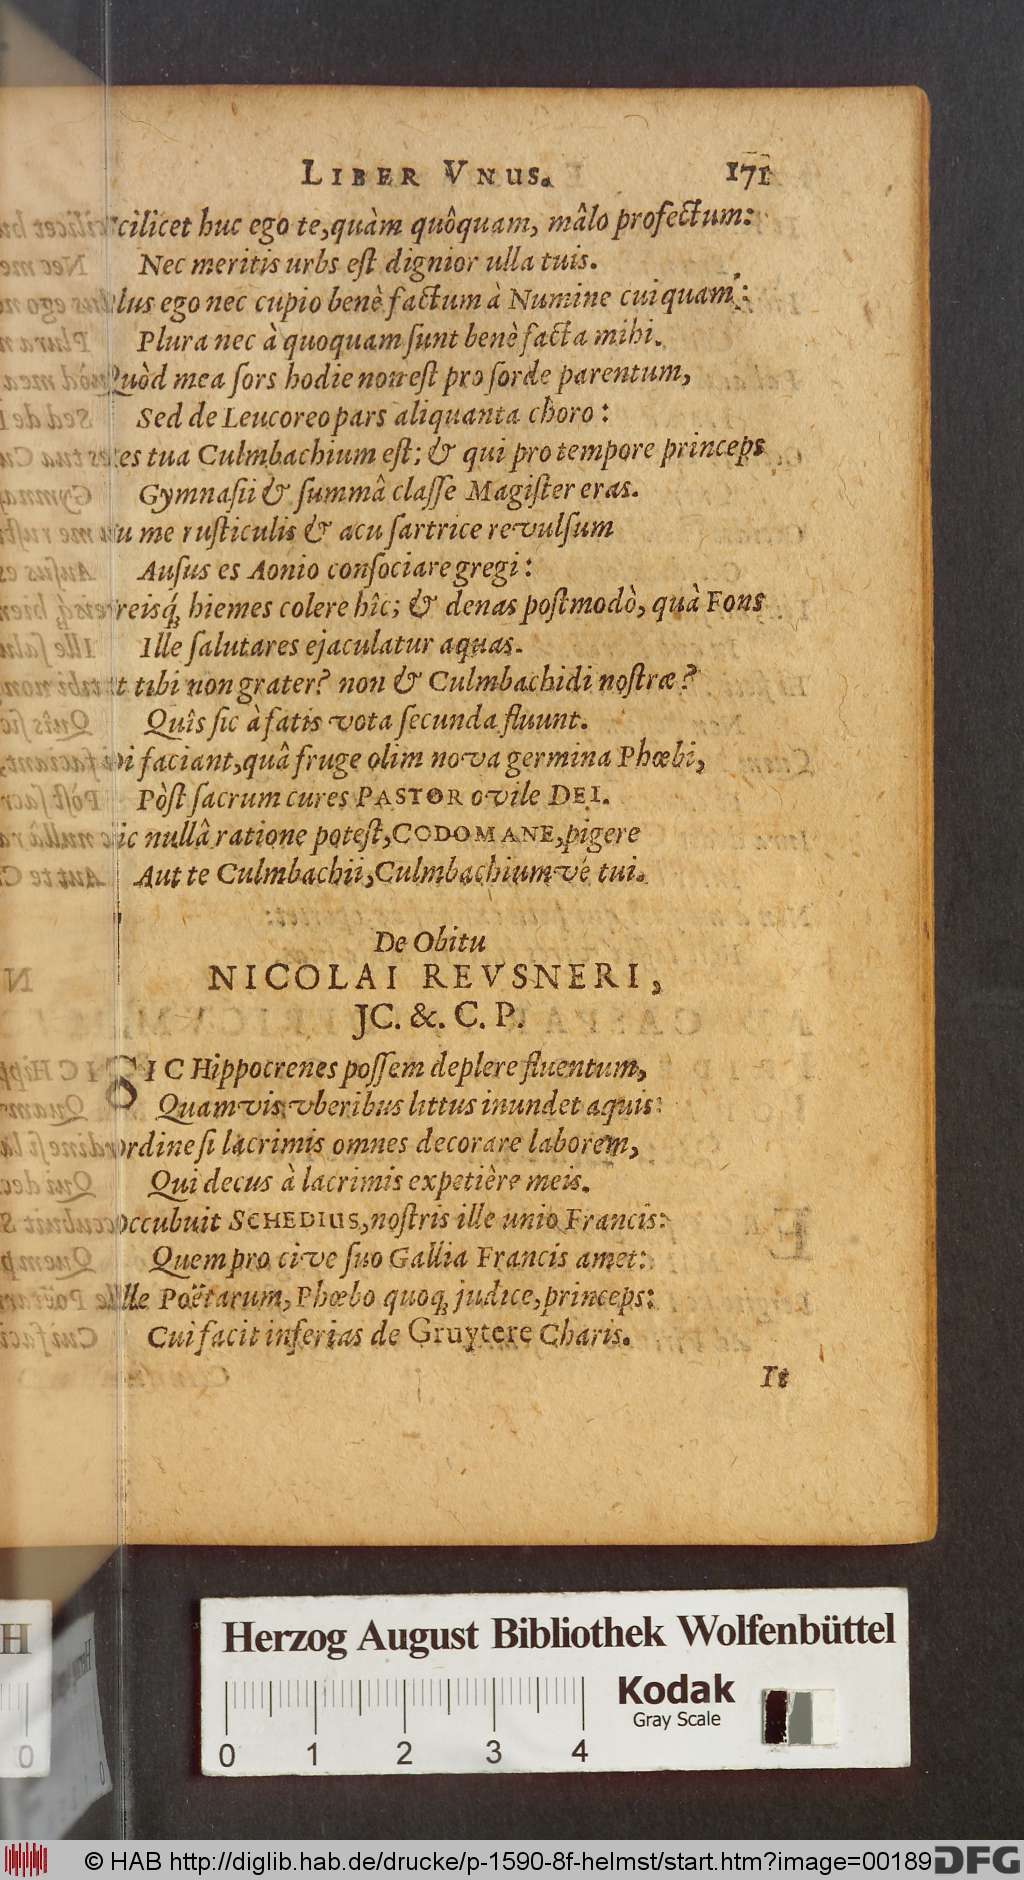 LIBER VNUS. 171
Scilicet huc ego te, quàm quôquam, mâlo profectum:
Nec meritis urbs eſt dignior ulla tuis.
ego nec cupio benè factum à Numine cuiquam:
Plura nec à quoquam ſunt benè facta mihi.
Quòd mea ſors hodie non eſt pro ſorde parentum,
Sed de Leucoreo pars aliquanta choro:
tua Culmbachium eſt; & qui pro tempore princeps
Gymnaſii & ſummâ claſſe Magiſter eras.
Tu me ruſticulis & acu ſartrice revulſum
Auſus es Aonio conſociare gregi:
hiemes colere hîc; & denas poſtmodò, quà Fons
Ille ſalutares ejaculatur aquas.
Et tibi non grater? non & Culmbachidi noſtræ?
Quîs ſic à fatis vota ſecunda fluunt.
faciant, quâ fruge olim nova germina Phœbi,
Pòſt ſacrum cures PASTOR ovile DEI.
Sic nullâ ratione poteſt, CODOMANE, pigere
Aut te Culmbachii, Culmbachiumvé tui.
De Obitu
NICOLAI REVSNERI,
JC. &. C. P.
SIC Hippocrenes poſſem deplere fluentum,
Quamvis vberibus littus inundet aquis:
Ordine ſi lacrimis omnes decorare laborem,
Qui decus à lacrimis expetière meis.
Occubuit SCHEDIUS, noſtris ille unio Francis:
Quem pro cive ſuo Gallia Francis amet:
Ille Poëtarum, Phœbo quoq́; judice, princeps:
Cui facit inferias de Gruytere Charis.
Is
Herzog August Bibliothek Wolfenbüttel
Kodak
Gray Scale
0 1 2 3 4
© HAB http://diglib.hab.de/drucke/p-1590-8f-helmst/start.htm?image=00189
DFG